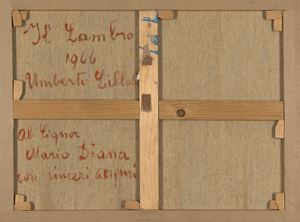 Il Lambro
1966
Umberto Lilloni
Al Signor
Mario Diana
con sinceri auguri